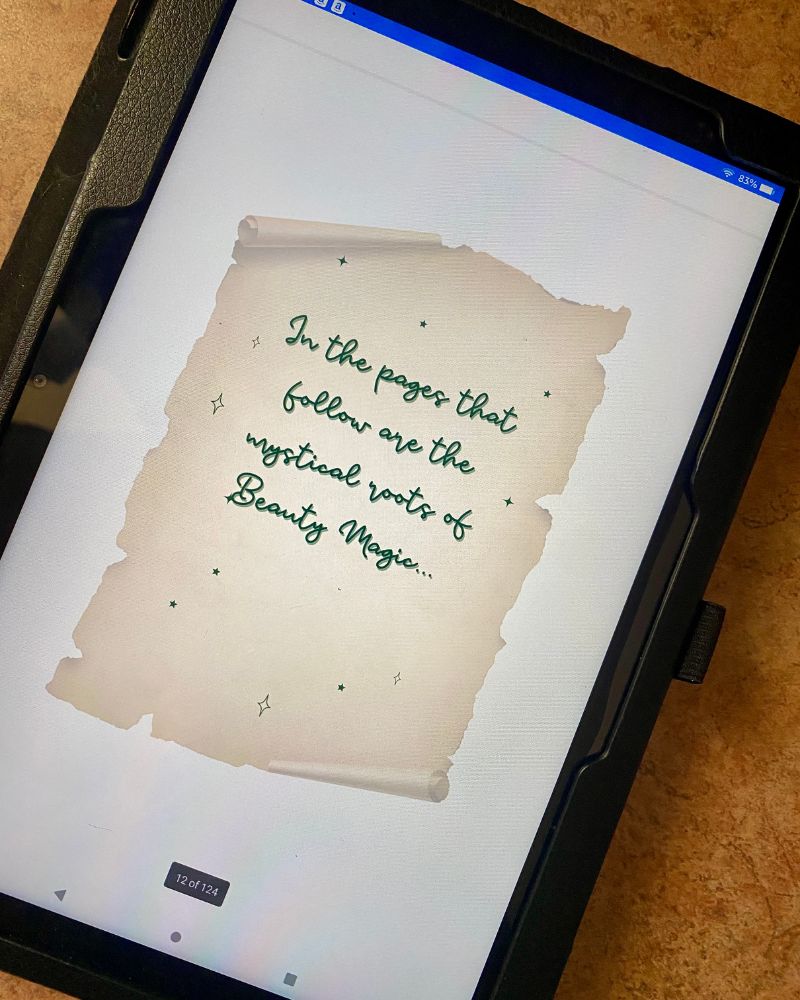 83%
In the pages that
follow are the
mystical roots of
Beauty Magic...
12 of 124